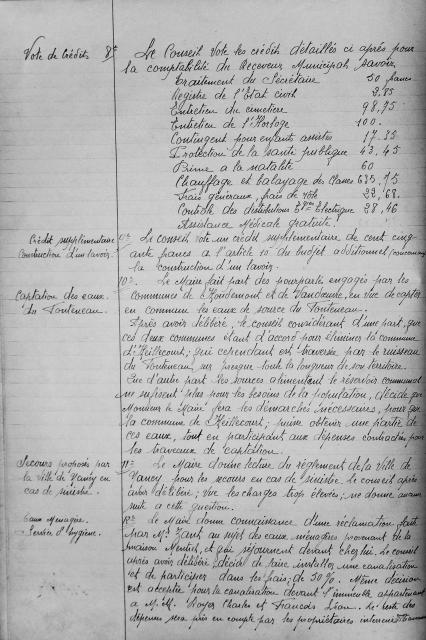 Vote de Crédits 8°
Le Conseil vote les crédits détaillés ci après pour
la comptabilité du Receveur Municipal, savoir,
Traitement du Secrétaire 50 francs
Registre de l'Etat civil 9.85
Entretien du cimetière 98,75
Entretien de l'Horloge 100.
Contingent pour enfants assistés
Protection de la santé publique 43,45
Prime a la natalité 60
Chauffage et balayage des Classes 635,75
Frais généraux, frais de 22,68.
Contrôle des distributions Electrique 28,46
Assistance Médicale gratuite.
Crédit supplémentaire
Construction d'un lavoir.
Le Conseil vote un crédit supplémentaire de cent cinq-
ante francs a l'article 10 du budget additionnel, concernant
la construction d'un lavoir.
Captation des eaux
du Fonteneau.
10° Le Maire fait part des pourparlers engagés par les
Communes de Houdemont et de Vandœuvre, en vue de capter
en commun les eaux de source du Fonteneau.
Après avoir délibéré, le conseil considérant d'une part, que
ces deux communes étant d'accord pour éliminer la commune
d'Heillecourt; qui cependant est traversée par le ruisseau
du Fonteneau, sur presque toute la longueur de son territoire.
Que d'autre part les sources alimentant le réservoir communal
ne suffisent plus pour les besoins de la population, décide que
Monsieur le Maire fera les démarches nécessaires, pour que
la commune de Heillecourt; puisse obtenir une partie de
ces eaux, tout en participant aux dépenses contractées pour
les travaux de captation.
Secours proposés par
la Ville de Nancy en
cas de sinistre.
11° Le Maire donne lecture du règlement de la Ville de
Nancy pour les secours en cas de sinistre. Le conseil après
avoir délibéré; vue les charges trop élevées; ne donne aucune
suite a cette question.
Eaux Ménagère.
Service d'Hygiène.
12° Le Maire donne connaissance d'une réclamation faite
par M. au sujet des eaux ménagères provenant de la
maison et qui séjournent devant chez lui. Le conseil
après avoir délibéré, décide de faire installer une canalisation
et de participer dans les frais; de 50 %. Même décision
est acceptée pour la canalisation devant l'immeuble appartenant
a M.M. Royer Charles et François Léon. Le reste des
dépenses sera pris en compte par les propriétaires